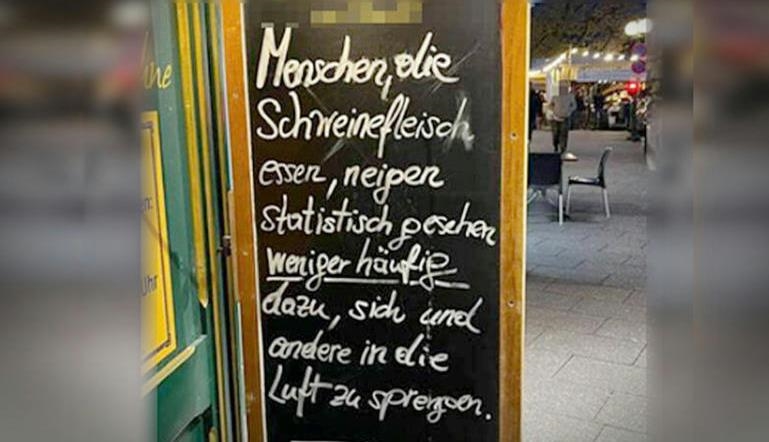 Menschen, die
Schweinefleisch
essen, neigen
statistisch gesehen
weniger häufig
dazu, sich und
andere in die
Luft zu sprengen.
Uhr